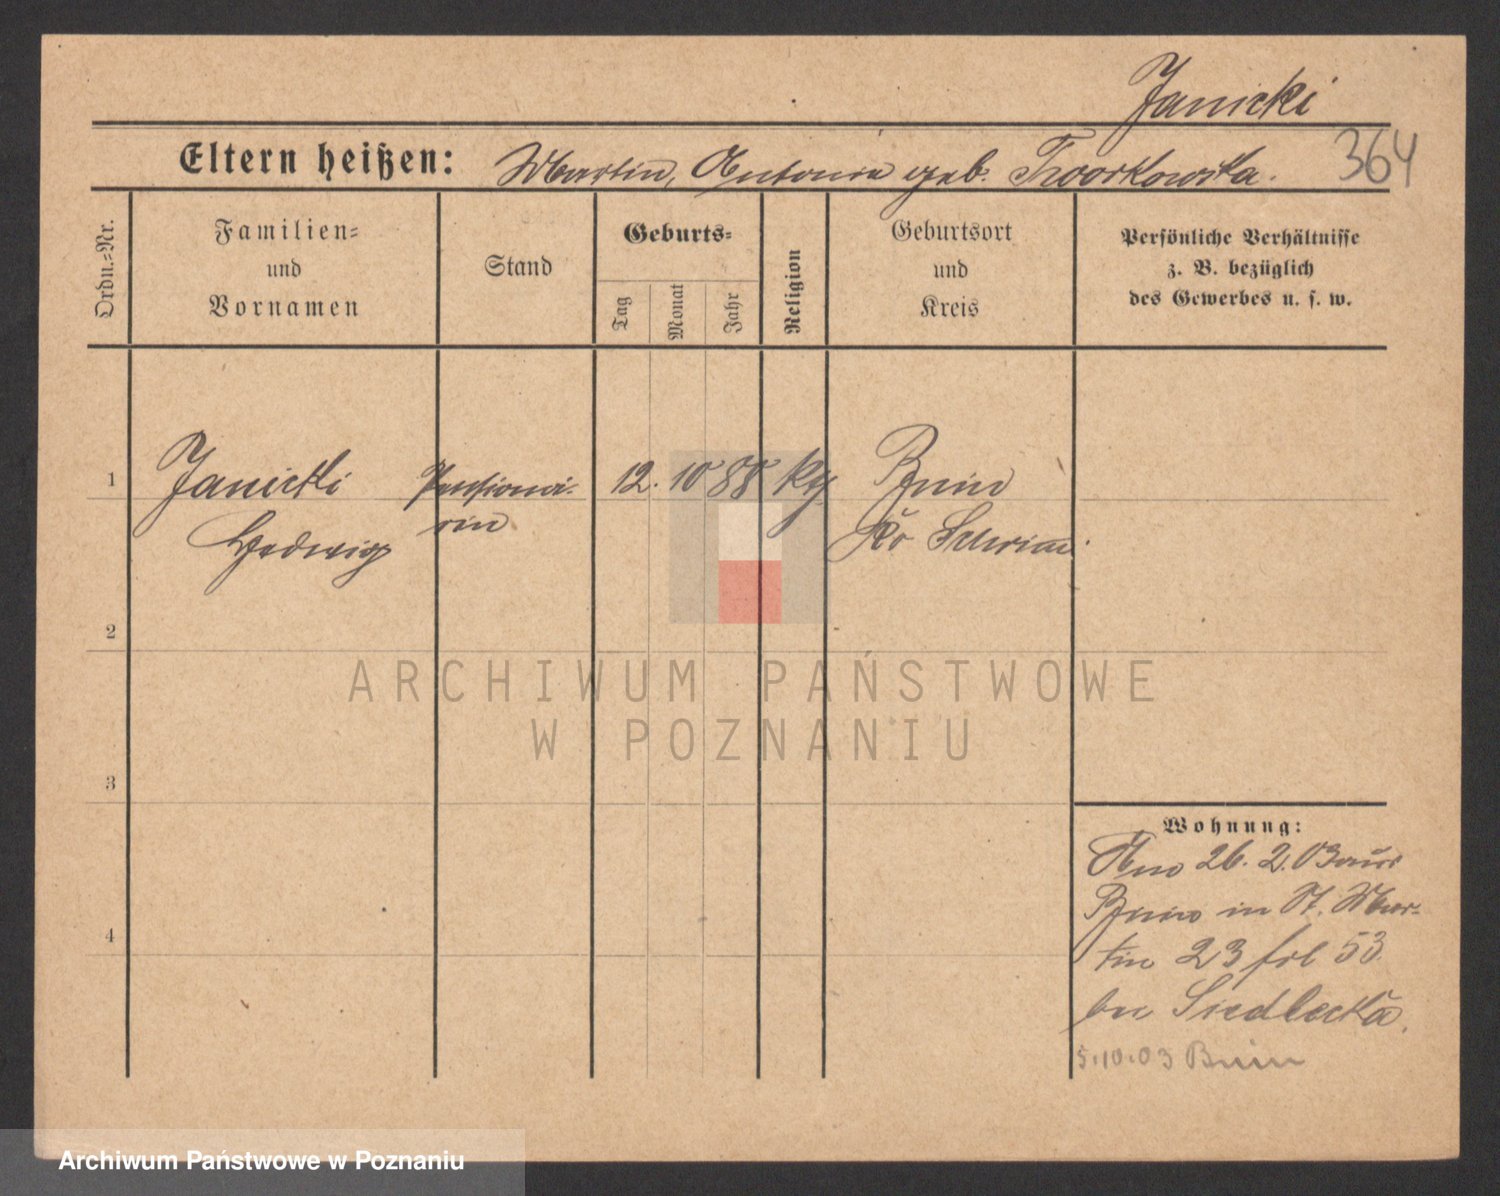 Janicki
Eltern heißen: Martin, Antonie geb. Tworkowska. 364
Ordn.-Nr.
Familien-
und
Vornamen
Stand
Geburts-
Tag
Monat
Jahr
Religion
Geburtsort
und
Kreis
Persönliche Verhältnisse
z. B. bezüglich
des Gewerbes u. s. w.
1 Janicki Pensionä- 12. 10 88 kth Bnin
Hedwig rin Kr Schrimm
2
ARCHIWUM PAŃSTWOWE
W POZNANIU
3
Wohnung:
26. 2. 03 aus
Bnin in St. Mar-
tin 23 53
bei Siedlecka.
4
5.10.03 Bnin
Archiwum Państwowe w Poznaniu